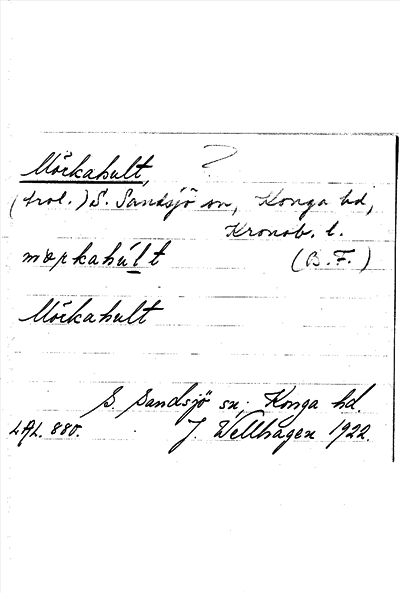 Möckahult, ?
(trol.) S. Sandsjö sn, Konga hd,
Kronob. l.
mœrkahúlt (B. F.)
Möckahult
S. Sandsjö sn, Konga hd.
LAL. 880. J. Wellhagen 1922.